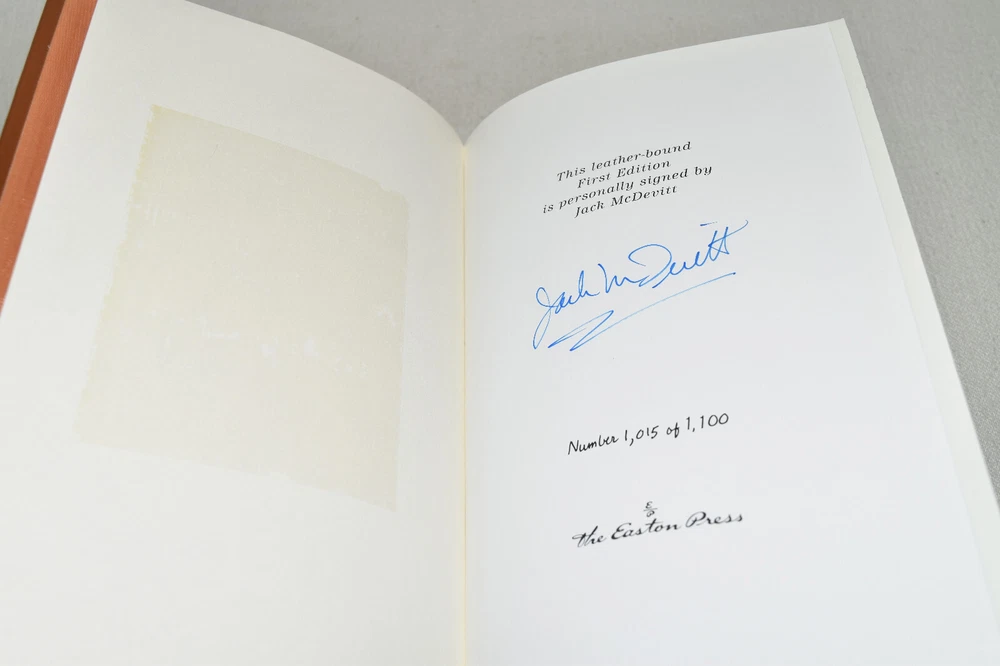 This leather-bound
First Edition
is personally signed by
Jack McDevitt
Jack McDevitt
Number 1,015 of 1,100
the Easton Press